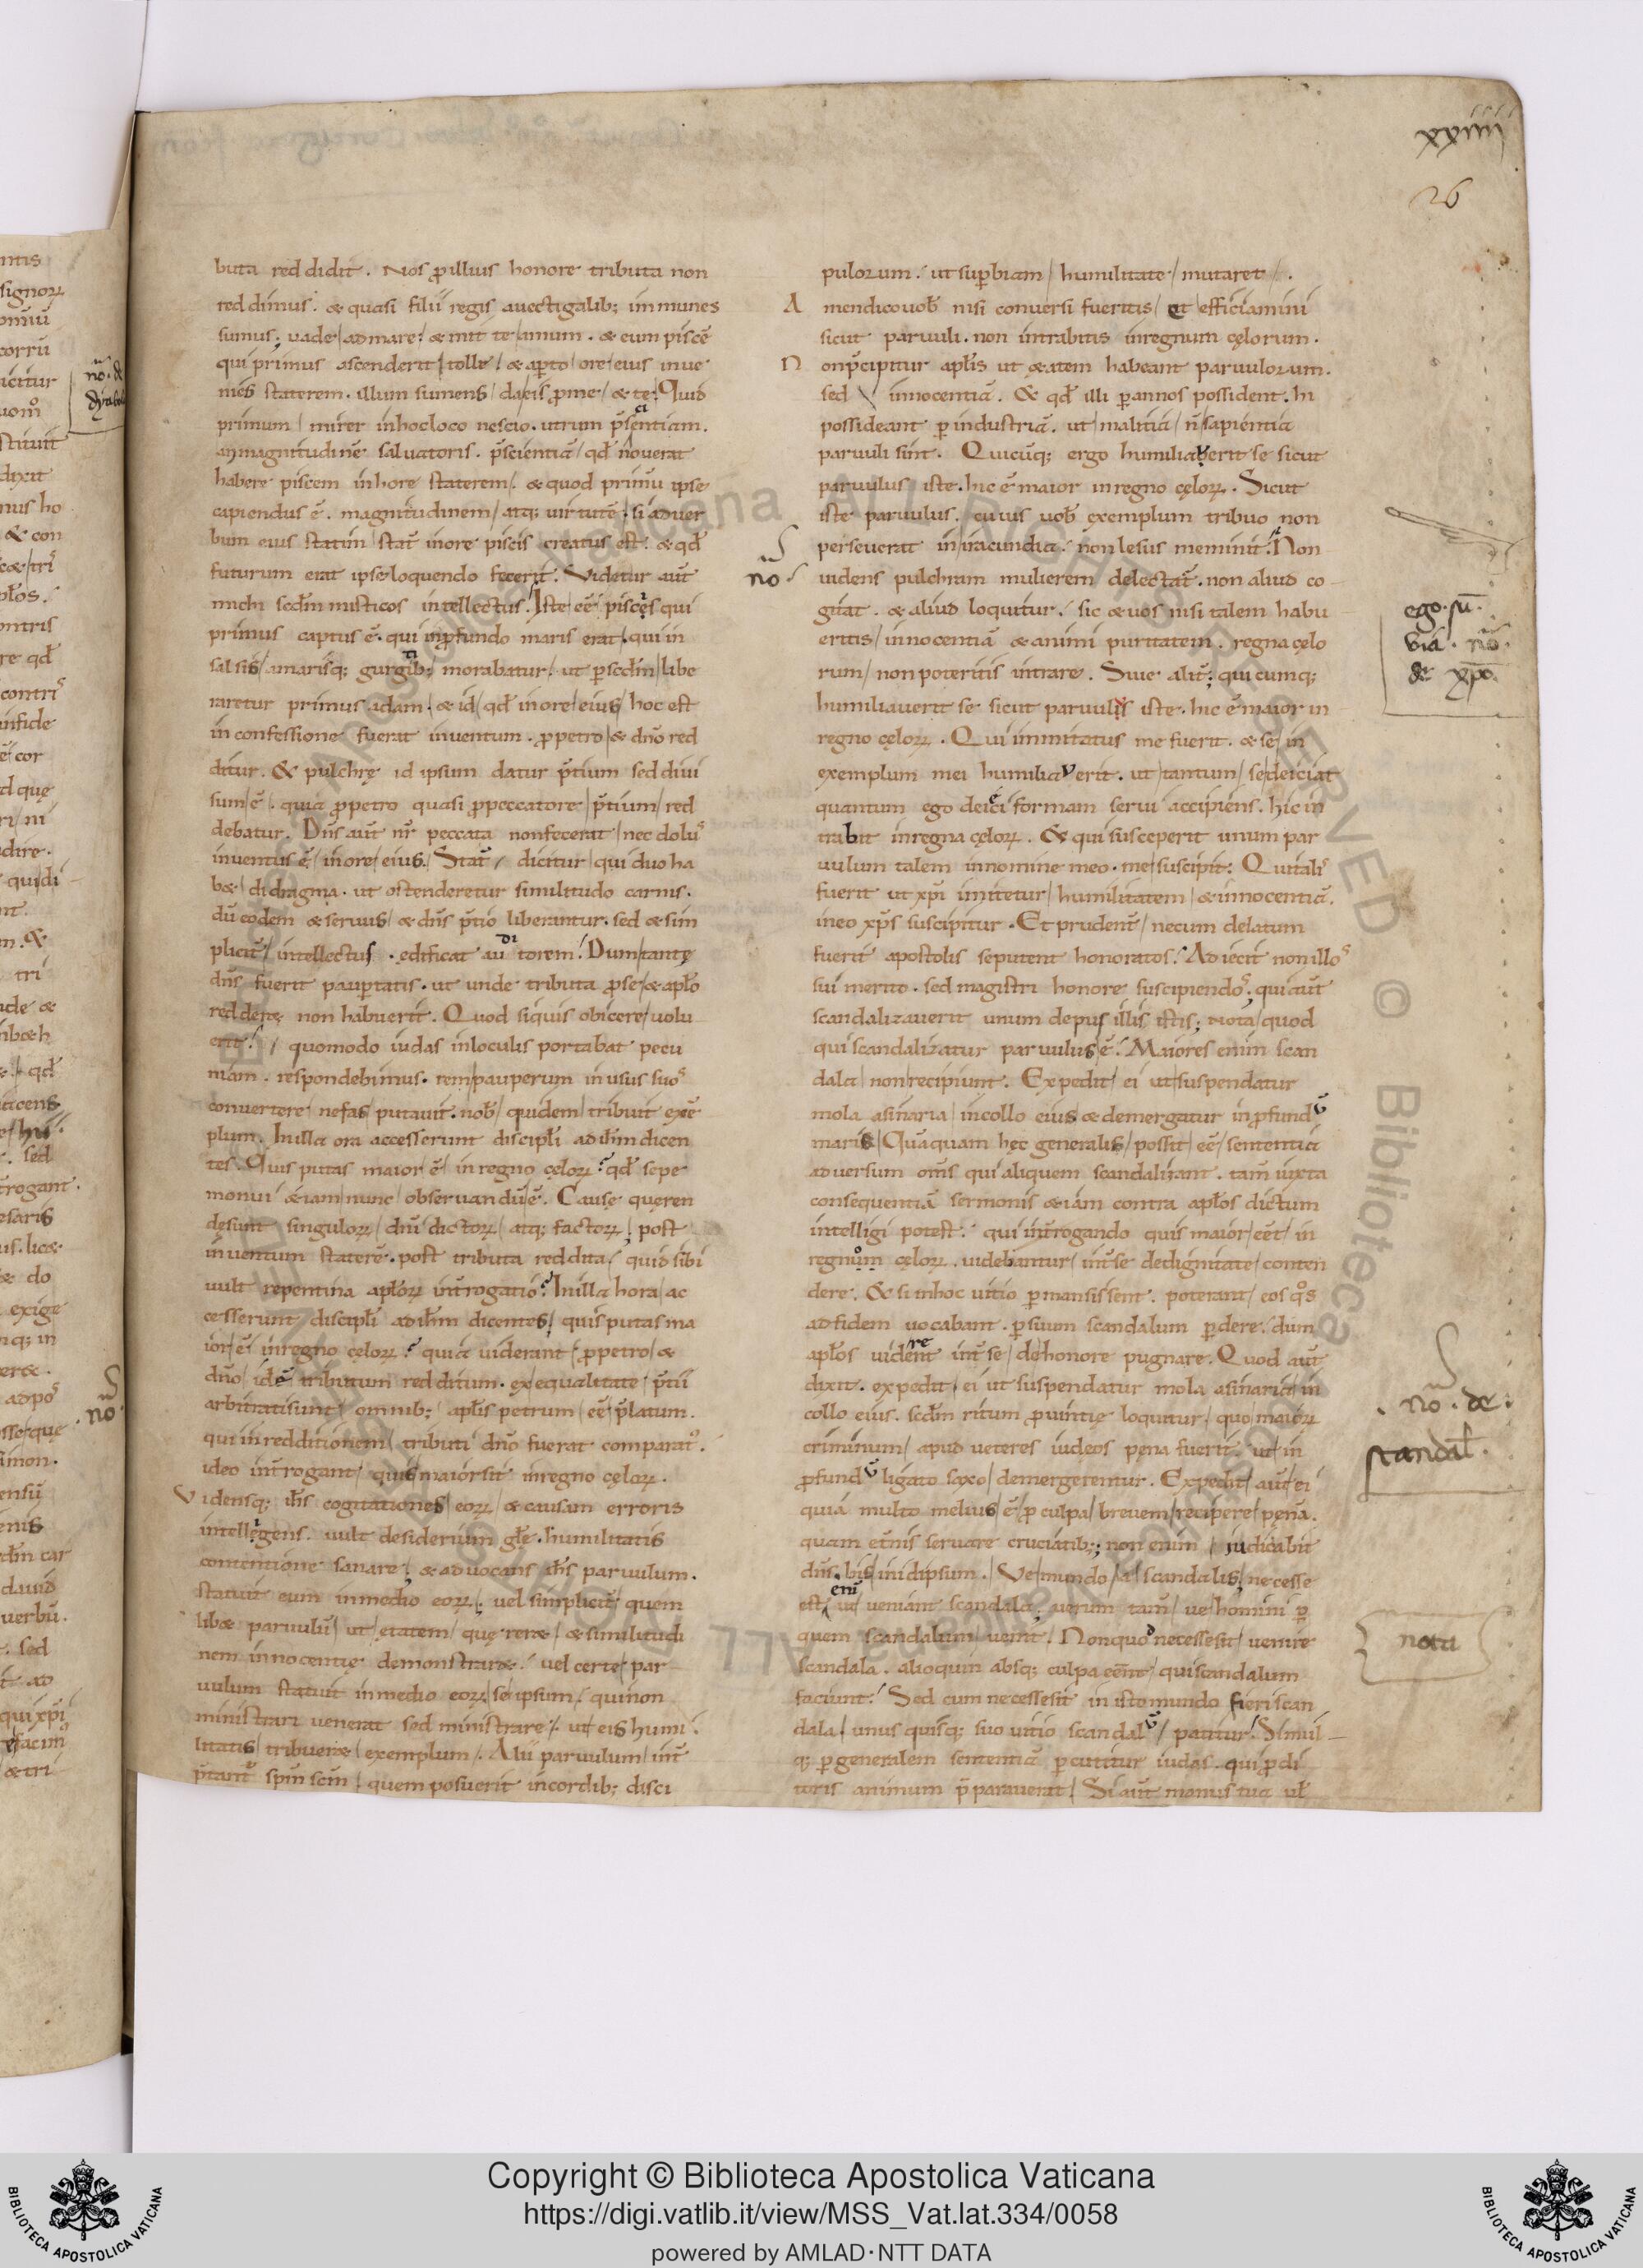 xxiiii
26
buta reddidit. Nos ꝓillius honore tributa non
reddimus. & quasi filii regis auectigalib; immunes
sumus. uade ad mare. & mitte amum. & eum piscē
qui primus ascenderit tolle. & aꝑto ore eius inue
nies staterem. illum sumens da eis ꝓme & te. Quid
primum mirer in hoc loco nescio. utrum p̄scientiam.
an magnitudinē saluatoris. p̄scientiā qđ nouerat
habere piscem inhore staterem. & quod primū ipse
capiendus ē. magnitudinem atq; uirtutē. si aduer
bum eius statim stat̄ inore piscis creatus est. & qđ
futurum erat ipse loquendo fecerit. Videtur aut̄
michi scđm misticos intellectus. Iste eē piscis qui
primus captus ē. qui inꝓfundo maris erat. qui in
salsis amarisq; gurgitib; morabatur. ut ꝑ scđm libe
raretur primus adam. & id qđ inore eius hoc est
in confessione fuerat inuentum. ꝓpetro & dn̄o red
ditur. & pulchrę id ipsum datur p̄tium sed diui
sum ē. quia ꝓpetro quasi ꝓpeccatore p̄tium red
debatur. Dn̄s aut̄ nr̄ peccata nonfecerat nec dolus
inuentus ē inore eius. Stat̄ dicitur qui duo ha
b& didragma. ut ostenderetur similitudo carnis.
dū eodem & seruus & dn̄s p̄tio liberantur. sed & sim
plicit̄ intellectus. ędificat auditorem. Dum tantę
dn̄s fuerit pauꝑtatis. ut unde tributa ꝓse & apl̄o
redderet non habuerit. Quod siquis obicere uolu
erit. quomodo iudas inloculis portabat pecu
niam. respondebimus. rem pauperum in usus suos
conuertere nefas putauit. nob̄ quidem tribuit exē
plum. Inilla ora accesserunt discipl̄i ad ih̄m dicen
tes. Quis putas maior ē in regno cęloꝝ? qđ sepe
monui &iam nunc obseruandū ē. Causę quęren
dęsunt singuloꝝ dn̄i dictoꝝ atq; factoꝝ. post
inuentum staterē. post tributa reddita. quid sibi
uult repentina apl̄oꝝ int̄rogatio? Inilla hora ac
cesserunt discipl̄i ad ih̄m dicentes. quis putas ma
ior ē inregno cęloꝝ? quia uiderant ꝓpetro &
dn̄o idē tributum redditum. ex equalitate p̄tii
arbitrati sunt omnib; apl̄is petrum eē p̄latum.
qui inredditionem tributi dn̄o fuerat comparatꝰ.
ideo int̄rogant quis maior sit inregno cęloꝝ.
Vidensq; ih̄s cogitationes eoꝝ & causam erroris
intelligens. uult desiderium gl̄ę. humilitatis
contentione sanare. & aduocans ih̄s paruulum.
statuit eum inmedio eoꝝ. uel simplicit̄ quem
lib& paruulū ut ętatem quęrer& & similitudi
nem innocentię demonstrar&. uel certe par
uulum statuit inmedio eoꝝ se ipsum. qui non
ministrari uenerat sed ministrare. ut eis humi
litatis tribuer& exemplum. Alii paruulum int̄
p̄tant̄ spm̄ scm̄. quem posuerit incordib; disci
pulorum. ut suꝑbiam humilitate mutaret.
Amendico uob̄ nisi conuersi fueritis et efficiamini
sicut paruuli. non intrabitis inregnum cęlorum.
Nonp̄cipitur apl̄is ut ętatem habeant paruulorum.
sed innocentiā. & qđ illi ꝑannos possident. hi
possideant ꝑ industriā. ut malitiā n̄ sapientia
paruuli sint. Quicūq; ergo humiliauerit se sicut
paruulus iste. hic ē maior inregno cęloꝝ. Sicut
iste paruulus. cuius uob̄ exemplum tribuo non
perseuerat in iracundia. non lesus meminit. Non
uidens pulchram mulierem delectat̄. non aliud co
gitat. & aliud loquitur. sic & uos nisi talem habu
eritis innocentiā & animi puritatem. regna cęlo
rum non poteritis intrare. Siue alit̄; qui cumq;
humiliauerit se sicut paruulus iste. hic ē maior in
regno cęloꝝ. Qui immitatus me fuerit. & se in
exemplum mei humiliauerit. ut tantum se deiciat
quantum ego deieci formam serui accipiens. hic in
trabit inregna cęloꝝ. & qui susceperit unum par
uulum talem innomine meo. me suscipit. Qui talis
fuerit ut xp̄i imitetur humilitatem & innocentiā.
ineo xp̄s suscipitur. Et prudent̄ necum delatum
fuerit apostolis seputent honoratos. Adiecit non illos
sui merito. sed magistri honore suscipiendos. qui aut̄
scandalizauerit unum de pusillis istis; Nota quod
qui scandalizatur paruulus ē. Maiores enim scan
dala non recipiunt. Expedit ei ut suspendatur
mola asinaria incollo eius & demergatur inꝓfundū
maris. Quaquam hęc generalis possit eē sententia
aduersum om̄s qui aliquem scandalizant. tam̄ iuxta
consequentiā sermonis &iam contra apl̄os dictum
intelligi potest. qui int̄rogando quis maior eēt in
regnum cęloꝝ. uidebantur int̄ se de dignitate conten
dere. & si inhoc uitio ꝑmansissent. poterant eos qͦs
ad fidem uocabant. ꝑ suum scandalum ꝑdere. dum
apl̄os uiderent int̄ se de honore pugnare. Quod aut̄
dixit. expedit ei ut suspendatur mola asinaria in
collo eius. scđm ritum ꝓuintię loquitur. quo maioꝝ
criminum apud ueteres iudęos pęna fuerit ut in
ꝓfundū ligato saxo demergerentur. Expedit aut̄ ei
quia multo melius ē ꝓ culpa breuem recipere pęnā.
quam et̄nis seruare cruciatib;; non enim iudicabit
dn̄s bis inidipsum. Ve mundo a scandalis, necesse
est enī ut ueniant scandala; uerum tam̄ ue homini ꝑ
quem scandalum uenit. Non quod necesse sit uenire
scandala. alioquin absq; culpa eēnt qui scandalum
faciunt. Sed cum necesse sit in isto mundo fieri scan
dala. unus quisq; suo uitio scandalū patitur. Simul
q; ꝑ generalem sententiā ꝑcutitur iudas. qui ꝓdi
toris animum p̄parauerat. Si aut̄ manus tua ul̄
nō
ego. sū.
via. nō.
de xp̄o.
. nō. de.
scandal̄.
nota
nō
Copyright © Biblioteca Apostolica Vaticana
https://digi.vatlib.it/view/MSS_Vat.lat.334/0058
powered by AMLAD·NTT DATA
BIBLIOTECA APOSTOLICA VATICANA
BIBLIOTECA APOSTOLICA VATICANA